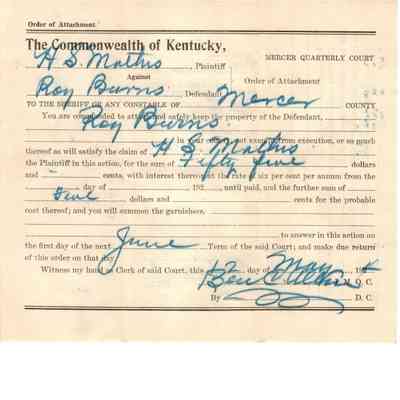 Order of Attachment
The Commonwealth of Kentucky,
MERCER QUARTERLY COURT
H S. Mathis, Plaintiff
Against
Order of Attachment
Roy Burns, Defendant
TO THE SHERIFF OR ANY CONSTABLE OF Mercer COUNTY
You are commanded to attach and safely keep the property of the Defendant,
Roy Burns
in your county not exempt from execution, or so much
thereof as will satisfy the claim of H S. Mathis
the Plaintiff in this action, for the sum of Fifty five dollars
and cents, with interest thereon at the rate of six per cent per annum from the
day of , 192 , until paid, and the further sum of
five dollars and cents for the probable
cost thereof; and you will summon the garnishees.
to answer in this action on
the first day of the next June Term of the said Court; and make due return
of this order on that day
Witness my hand as Clerk of said Court, this 12 day of May
Ben C. Q. C.
By D. C.